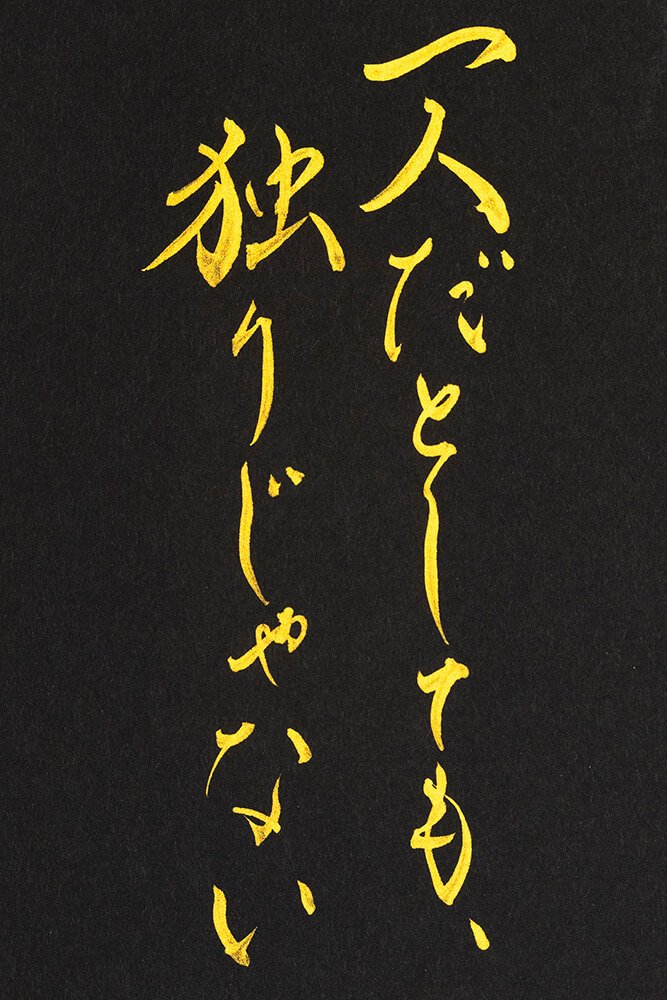 一人だとしても、
独りじゃない